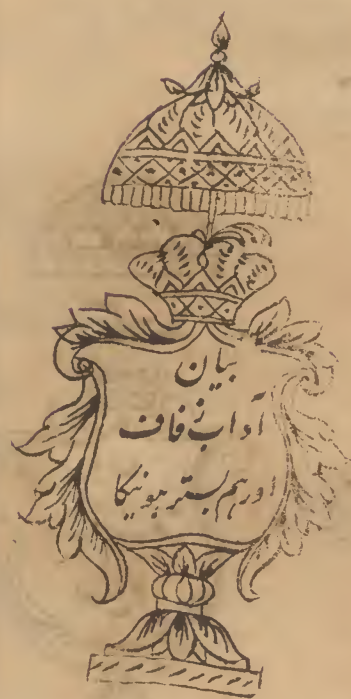 بیان
آداب زفاف
اور ہم بستر ہونیکا